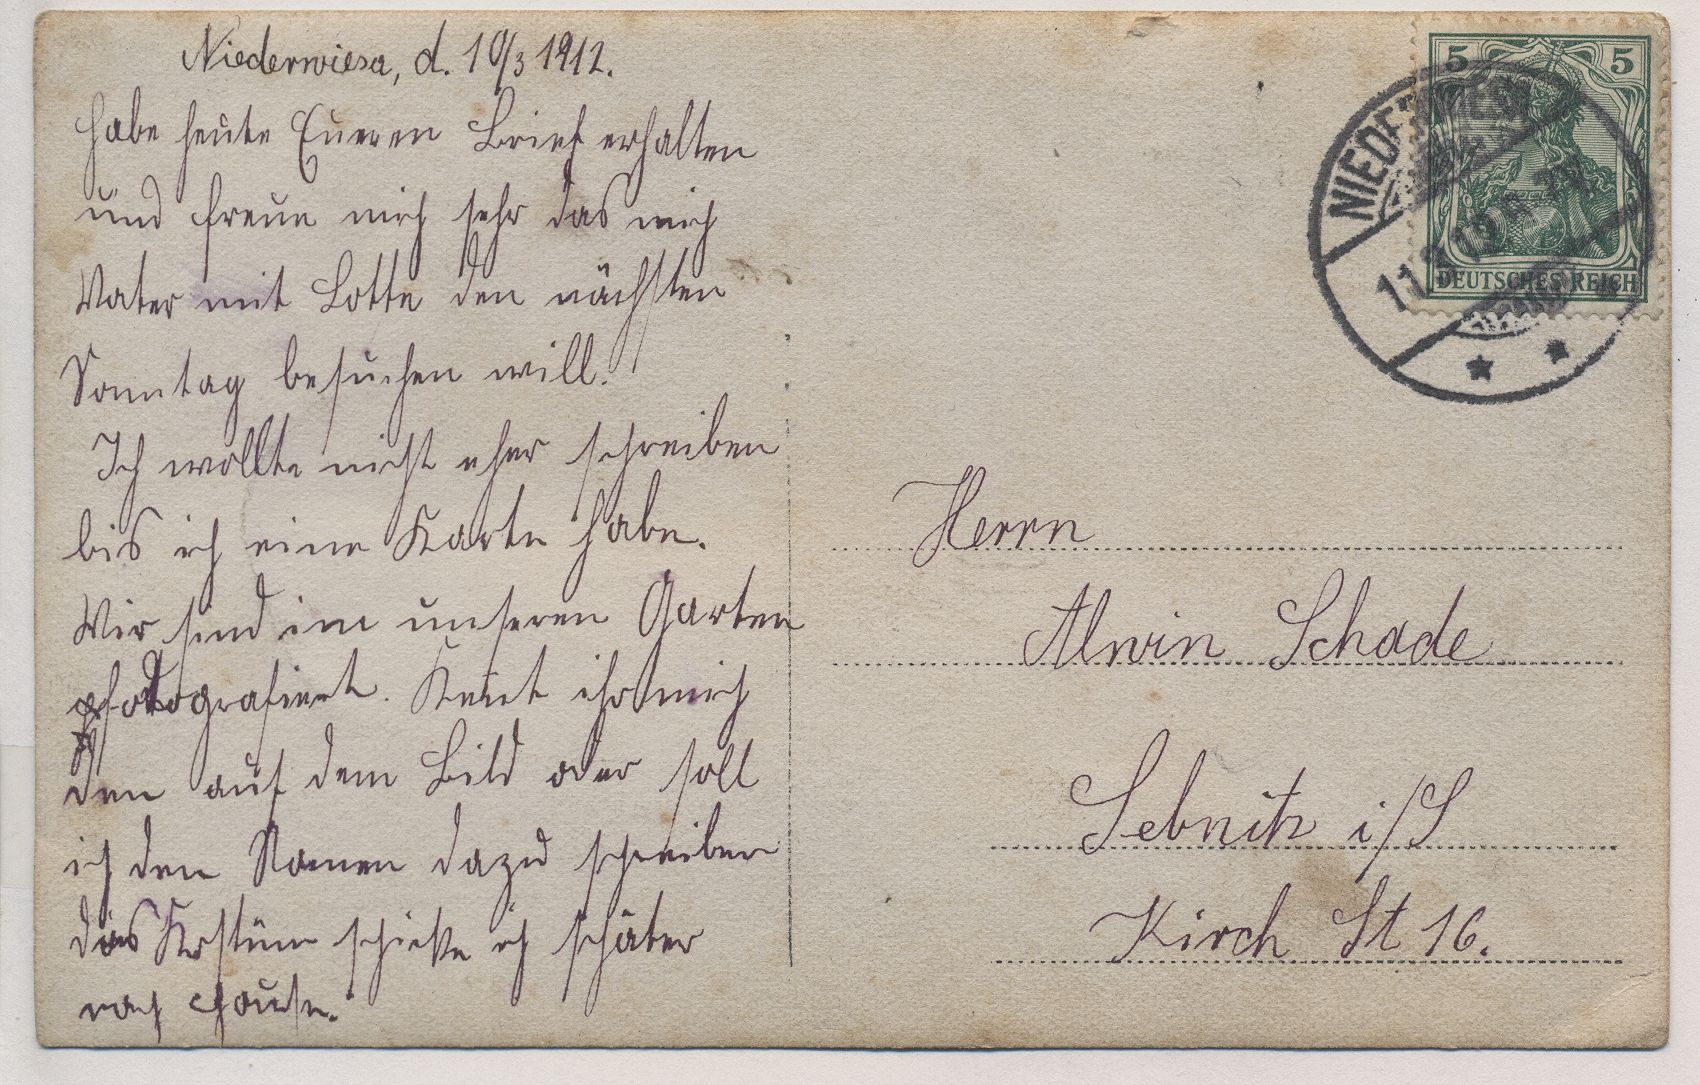 Niederwiesa, d. 10/3 1912.
Habe heute Eueren Brief erhalten
und freue mich sehr das mich
Vater mit Lotte den nächsten
Sonntag besuchen will.
Ich wollte nicht eher schreiben
bis ich eine Karte habe.
Wir sind im unseren Garten
photografiert. Kent ihr mich
den auf dem Bild oder soll
ich den Namen dazu schreiben
das Kostüm schicke ich später
nach Hause.
5 5
DEUTSCHES REICH
NIEDERWIESA
11.3.12
Herrn
Alwin Schade
Sebnitz i/S
Kirch St 16.